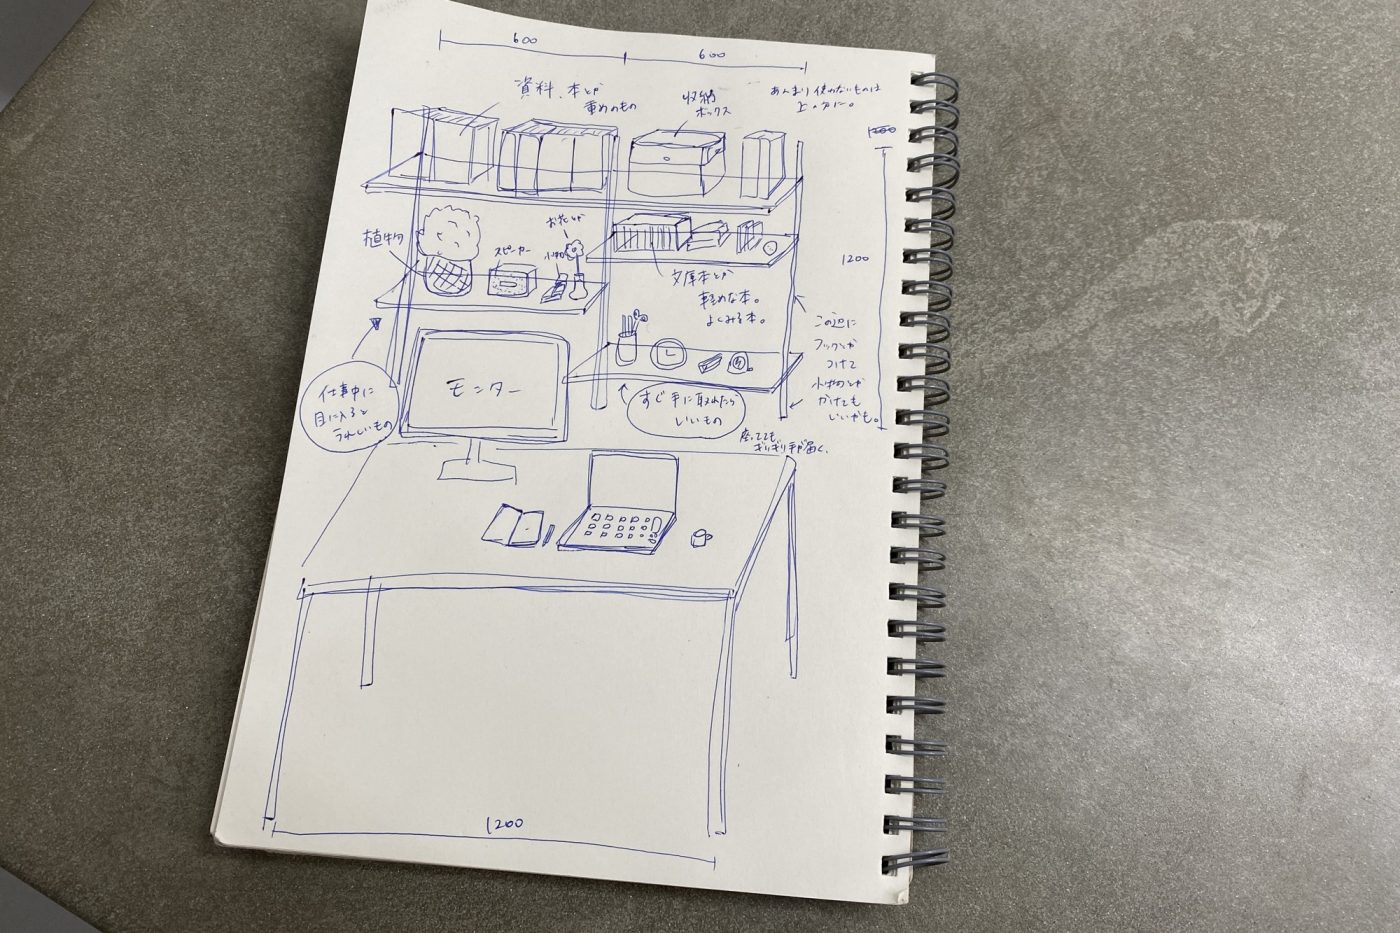 600
600
資料、本とか
重めのもの
収納
ボックス
あんまり使わないものは
上の方に。
1200
植物
スピーカー
お花とか
小物
文庫本とか
軽めな本。
よくみる本。
1200
この辺に
フックとか
つけて
小物とか
かけても
いいかも。
仕事中に
目に入ると
うれしいもの
モニター
すぐ手に取れたら
いいもの
座ってても
ぎりぎり手が届く、
1200